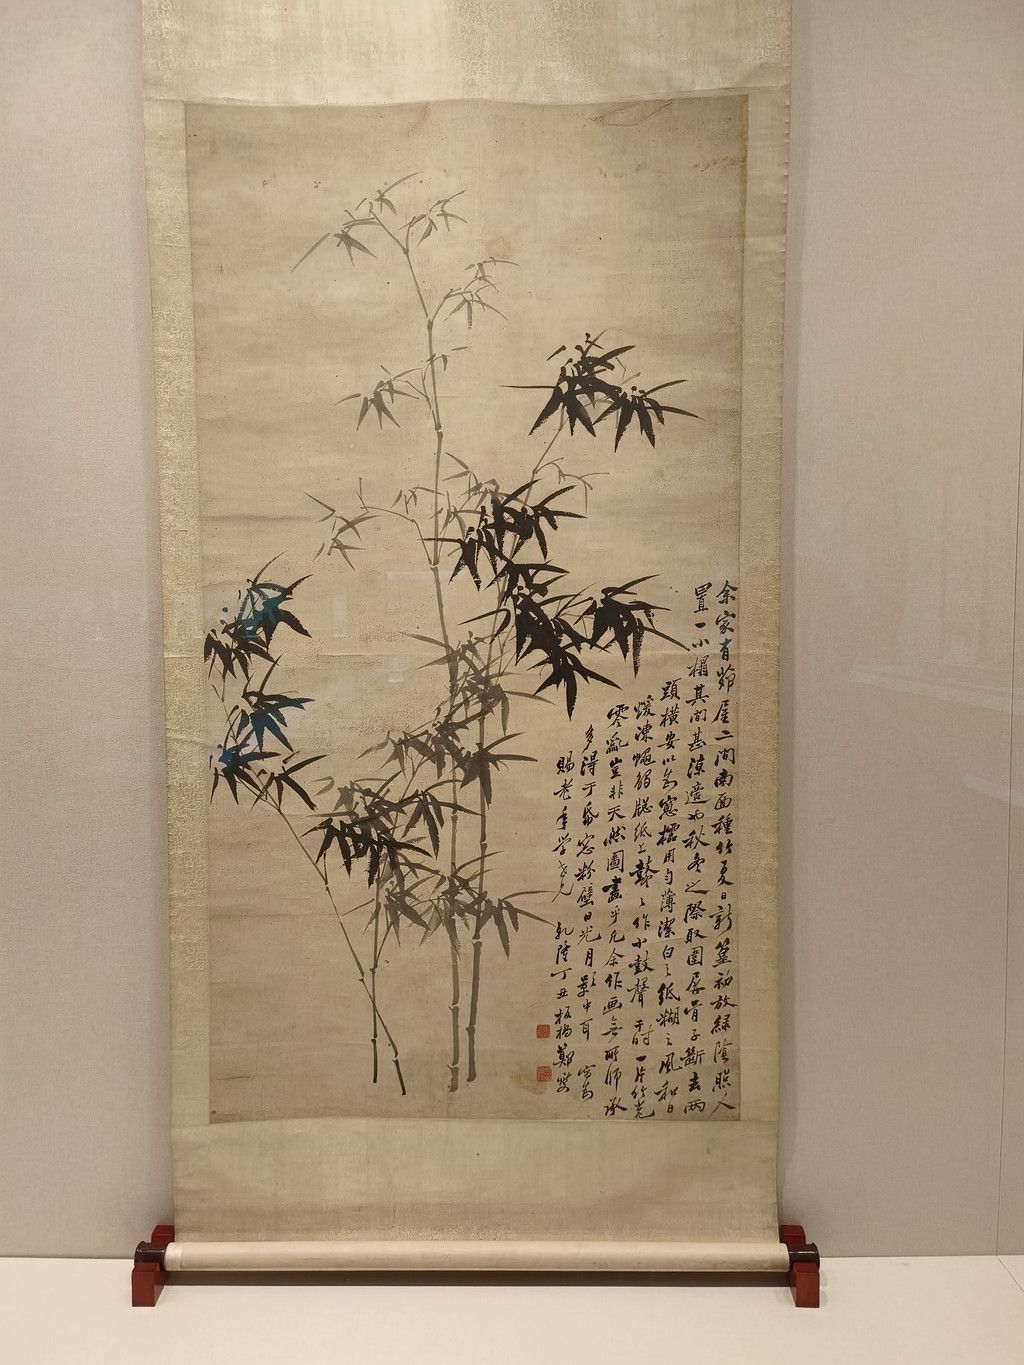 余家有茆屋二间南面種竹夏日新篁初放綠陰照人
置一小榻其间甚涼適也秋冬之際取圍屏骨子斷去两
頭横安以爲窻櫺用匀薄潔白之纸糊之風和日
煖凍蠅觸牕纸上鼕鼕作小鼓聲于时一片竹影
零亂豈非天然圖畫乎凡余作画無所师承
多得于昏窓粉壁日光月影中耳
賜老年学老兄
乾隆丁丑板橋鄭燮